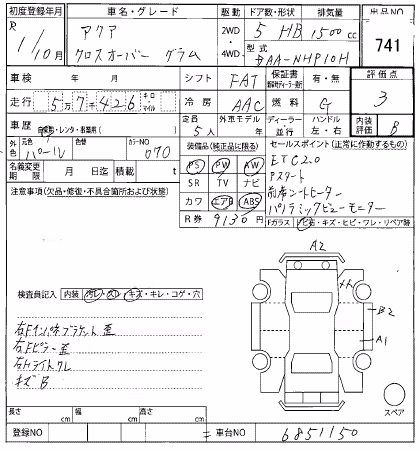 初度登録年月 車名・グレード 駆動 ドア数・形状 排気量 出品NO
R 1/10月 アクア 2WD・ 5 HB 1500cc 741
クロスオーバー グラム 4WD・ 型式 DAA-NHP10H
車検 年 月 シフト FAT 保証書 有・無 評価点
走行 5万7千426 キロ・マイル 冷房 AAC 燃料 G 3
車歴 自家用・レンタ・事業用( ) 定員 5人 外車モデル ディーラー・並行 ハンドル 左・右 内装評価 B
外色 元色 パール 色替 カラーNO 070 装備品(純正品に限る) セールスポイント(正常に作動するもの)
名義変更期限 月 日迄 積載 t PS PW AW ETC2.0
注意事項(欠品・修復・不具合箇所および状態) SR TV ナビ Pスタート
カワ エアB ABS 前席シートヒーター
R券 9130円 パノラミックビューモニター
Fガラス 飛石・キズ・ヒビ・ワレ・リペア跡
A2
検査員記入 内装 汚レ・スレ・キズ・キレ・コゲ・穴
B2
A1
右Fインパネブラケット歪
右Fピラー歪
右Hライトワレ
キズB
スペア
長さ cm 幅 cm 高さ cm
登録NO 車台NO 6851150